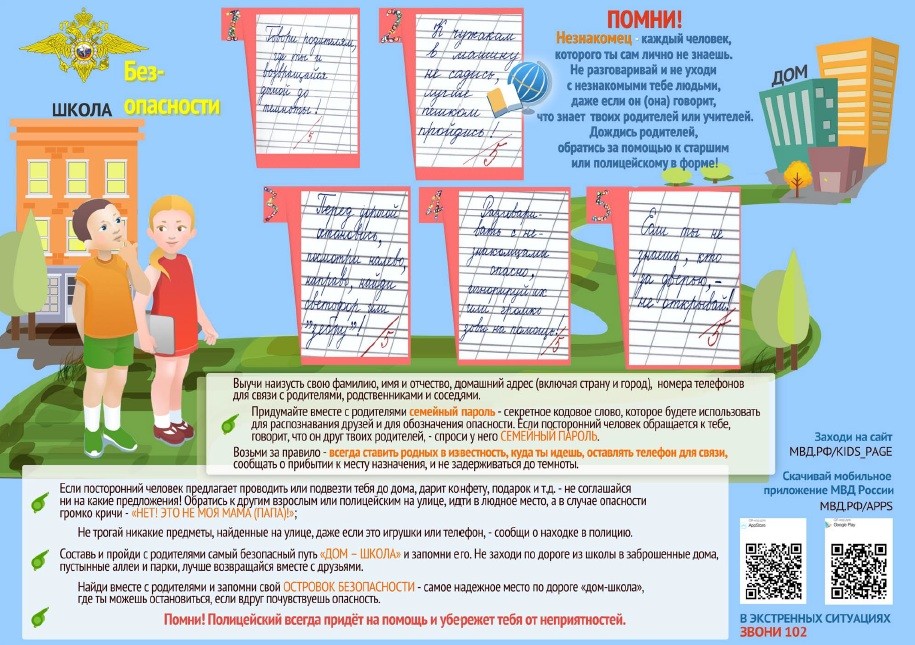 Без-
опасности
ШКОЛА
1
Говори родителям,
где ты и
возвращайся
домой до
темноты!
5
2
К чужакам
в машину
не садись,
лучше
пешком
пройдись!
5
ПОМНИ!
Незнакомец - каждый человек,
которого ты сам лично не знаешь.
Не разговаривай и не уходи
с незнакомыми тебе людьми,
даже если он (она) говорит,
что знает твоих родителей или учителей.
Дождись родителей,
обратись за помощью к старшим
или полицейскому в форме!
ДОМ
3
Перед дорогой
остановись,
посмотри налево,
направо, найди
светофор или
"зебру"!
5
4
Разговари-
вать с не-
знакомцами
опасно,
игнорируй их
или громко
зови на помощь!
5
5
Если ты не
знаешь, кто
за дверью, -
не открывай!
5
Выучи наизусть свою фамилию, имя и отчество, домашний адрес (включая страну и город), номера телефонов
для связи с родителями, родственниками и соседями.
Придумайте вместе с родителями семейный пароль - секретное кодовое слово, которое будете использовать
для распознавания друзей и для обозначения опасности. Если посторонний человек обращается к тебе,
говорит, что он друг твоих родителей, - спроси у него СЕМЕЙНЫЙ ПАРОЛЬ.
Возьми за правило - всегда ставить родных в известность, куда ты идешь, оставлять телефон для связи,
сообщать о прибытии к месту назначения, и не задерживаться до темноты.
Если посторонний человек предлагает проводить или подвезти тебя до дома, дарит конфету, подарок и т.д. - не соглашайся
ни на какие предложения! Обратись к другим взрослым или полицейским на улице, идти в людное место, а в случае опасности
громко кричи - «НЕТ! ЭТО НЕ МОЯ МАМА (ПАПА)!»;
Не трогай никакие предметы, найденные на улице, даже если это игрушки или телефон, - сообщи о находке в полицию.
Составь и пройди с родителями самый безопасный путь «ДОМ – ШКОЛА» и запомни его. Не заходи по дороге из школы в заброшенные дома,
пустынные аллеи и парки, лучше возвращайся вместе с друзьями.
Найди вместе с родителями и запомни свой ОСТРОВОК БЕЗОПАСНОСТИ - самое надежное место по дороге «дом-школа»,
где ты можешь остановиться, если вдруг почувствуешь опасность.
Помни! Полицейский всегда придёт на помощь и убережет тебя от неприятностей.
Заходи на сайт
МВД.РФ/KIDS_PAGE
Скачивай мобильное
приложение МВД России
МВД.РФ/APPS
AppStore
Google Play
В ЭКСТРЕННЫХ СИТУАЦИЯХ
ЗВОНИ 102